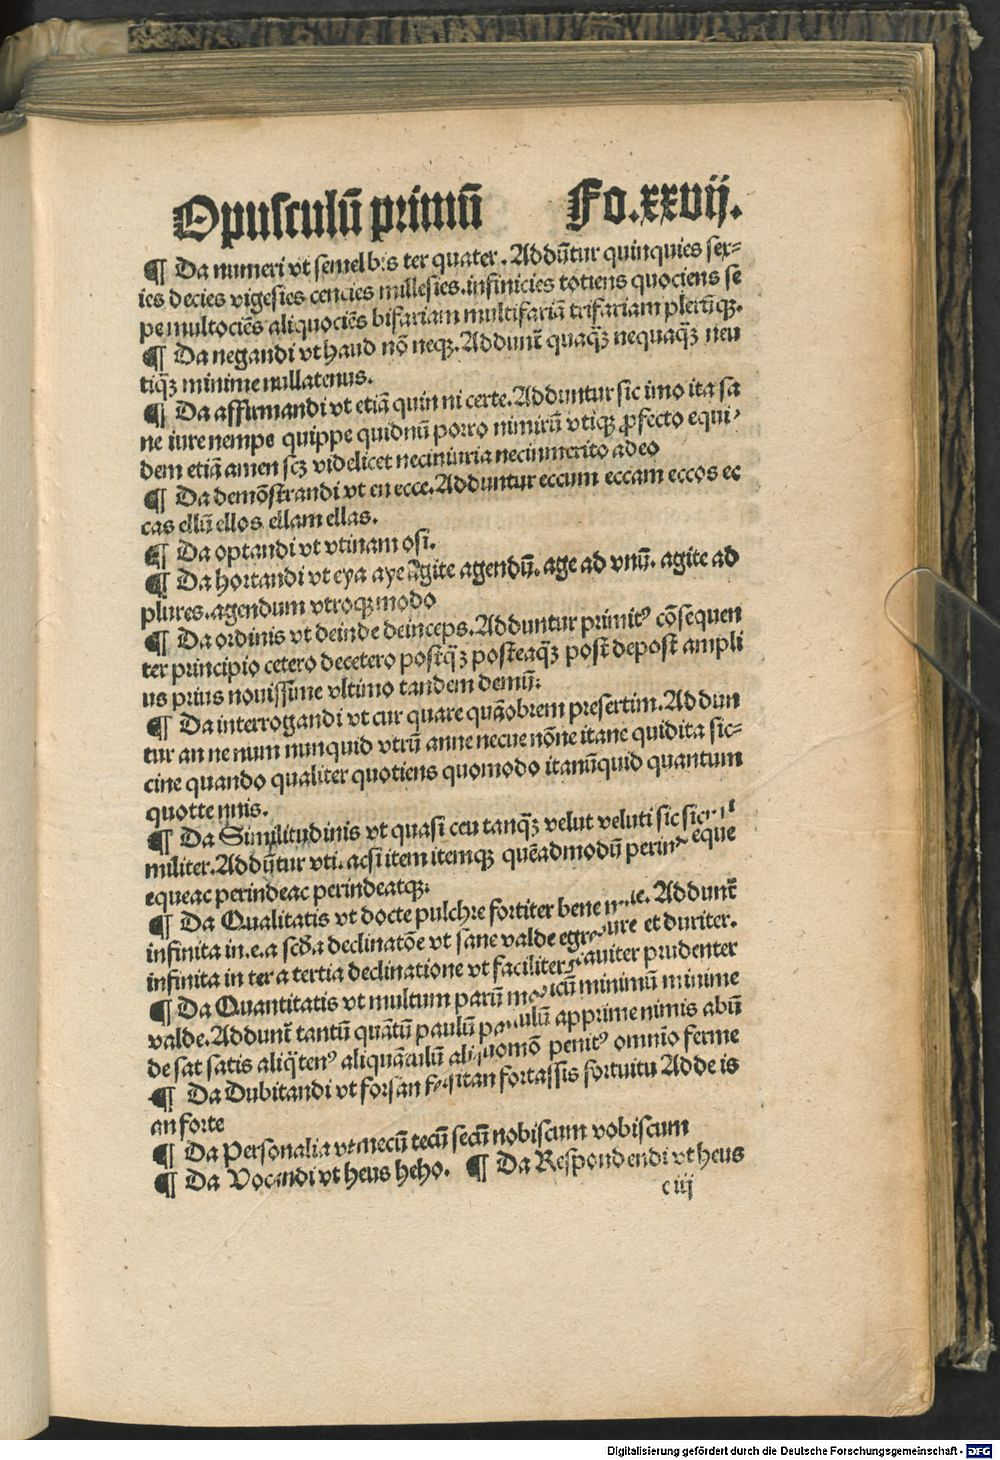 Opusculū primū Fo.xxvij.
¶ Da numeri vt semel bis ter quater. Addūtur quinquies sex-
ies decies vigesies cencies millesies. infinicies totiens quociens se
pe multociēs aliquociēs bifariam multifariā trifariam plerūqꝫ.
¶ Da negandi vt haud nō neqꝫ. Addunt̄ quaq̄ꝫ nequaq̄ꝫ neu
tiq̄ꝫ minime nullatenus.
¶ Da affirmandi vt etiā quin ni certe. Adduntur sic imo ita sa
ne iure nempe quippe quidnū porro nimirū vtiqꝫ ꝓfecto equi-
dem etiā amen scꝫ videlicet neciniuria necinmerito adeo
¶ Da demōstrandi vt en ecce. Adduntur eccum eccam eccos ec
cas ellū ellos ellam ellas.
¶ Da optandi vt vtinam osi.
¶ Da hortandi vt eya aye agite agendū. age ad vnū. agite ad
plures. agendum vtroqꝫ modo
¶ Da ordinis vt deinde deinceps. Adduntur primitꝰ cōsequen
ter principio cetero decetero postq̄ꝫ posteaq̄ꝫ post depost ampli
us prius nouissime vltimo tandem demū:
¶ Da interrogandi vt cur quare quāobrem presertim. Addun
tur an ne num nunquid vtrū anne necue nōne itane quidita sic-
cine quando qualiter quotiens quomodo itanūquid quantum
quottennis.
¶ Da Similitudinis vt quasi ceu tanq̄ꝫ velut veluti sic
militer. Addūtur vti. acsi item itemqꝫ quēadmodū eque
equeac perindeac perindeatqꝫ.
¶ Da Qualitatis vt docte pulchre fortiter bene Addunt̄
infinita in.e.a scd̄a declinatōe vt sane valde et duriter.
infinita in ter a tertia declinatione vt faciliter prudenter
¶ Da Quantitatis vt multum parū minimū minime
valde. Addunt̄ tantū quātū paulū apprime nimis abū
de sat satis aliq̄tenꝰ aliquātulū penitꝰ omnīo ferme
¶ Da Dubitandi vt forsan forsitan fortassis fortuitu Adde is
an forte
¶ Da Personalia vt mecū tecū secū nobiscum vobiscum
¶ Da Vocandi vt heus heho. ¶ Da Respondendi vt heus
c iij
Digitalisierung gefördert durch die Deutsche Forschungsgemeinschaft - DFG